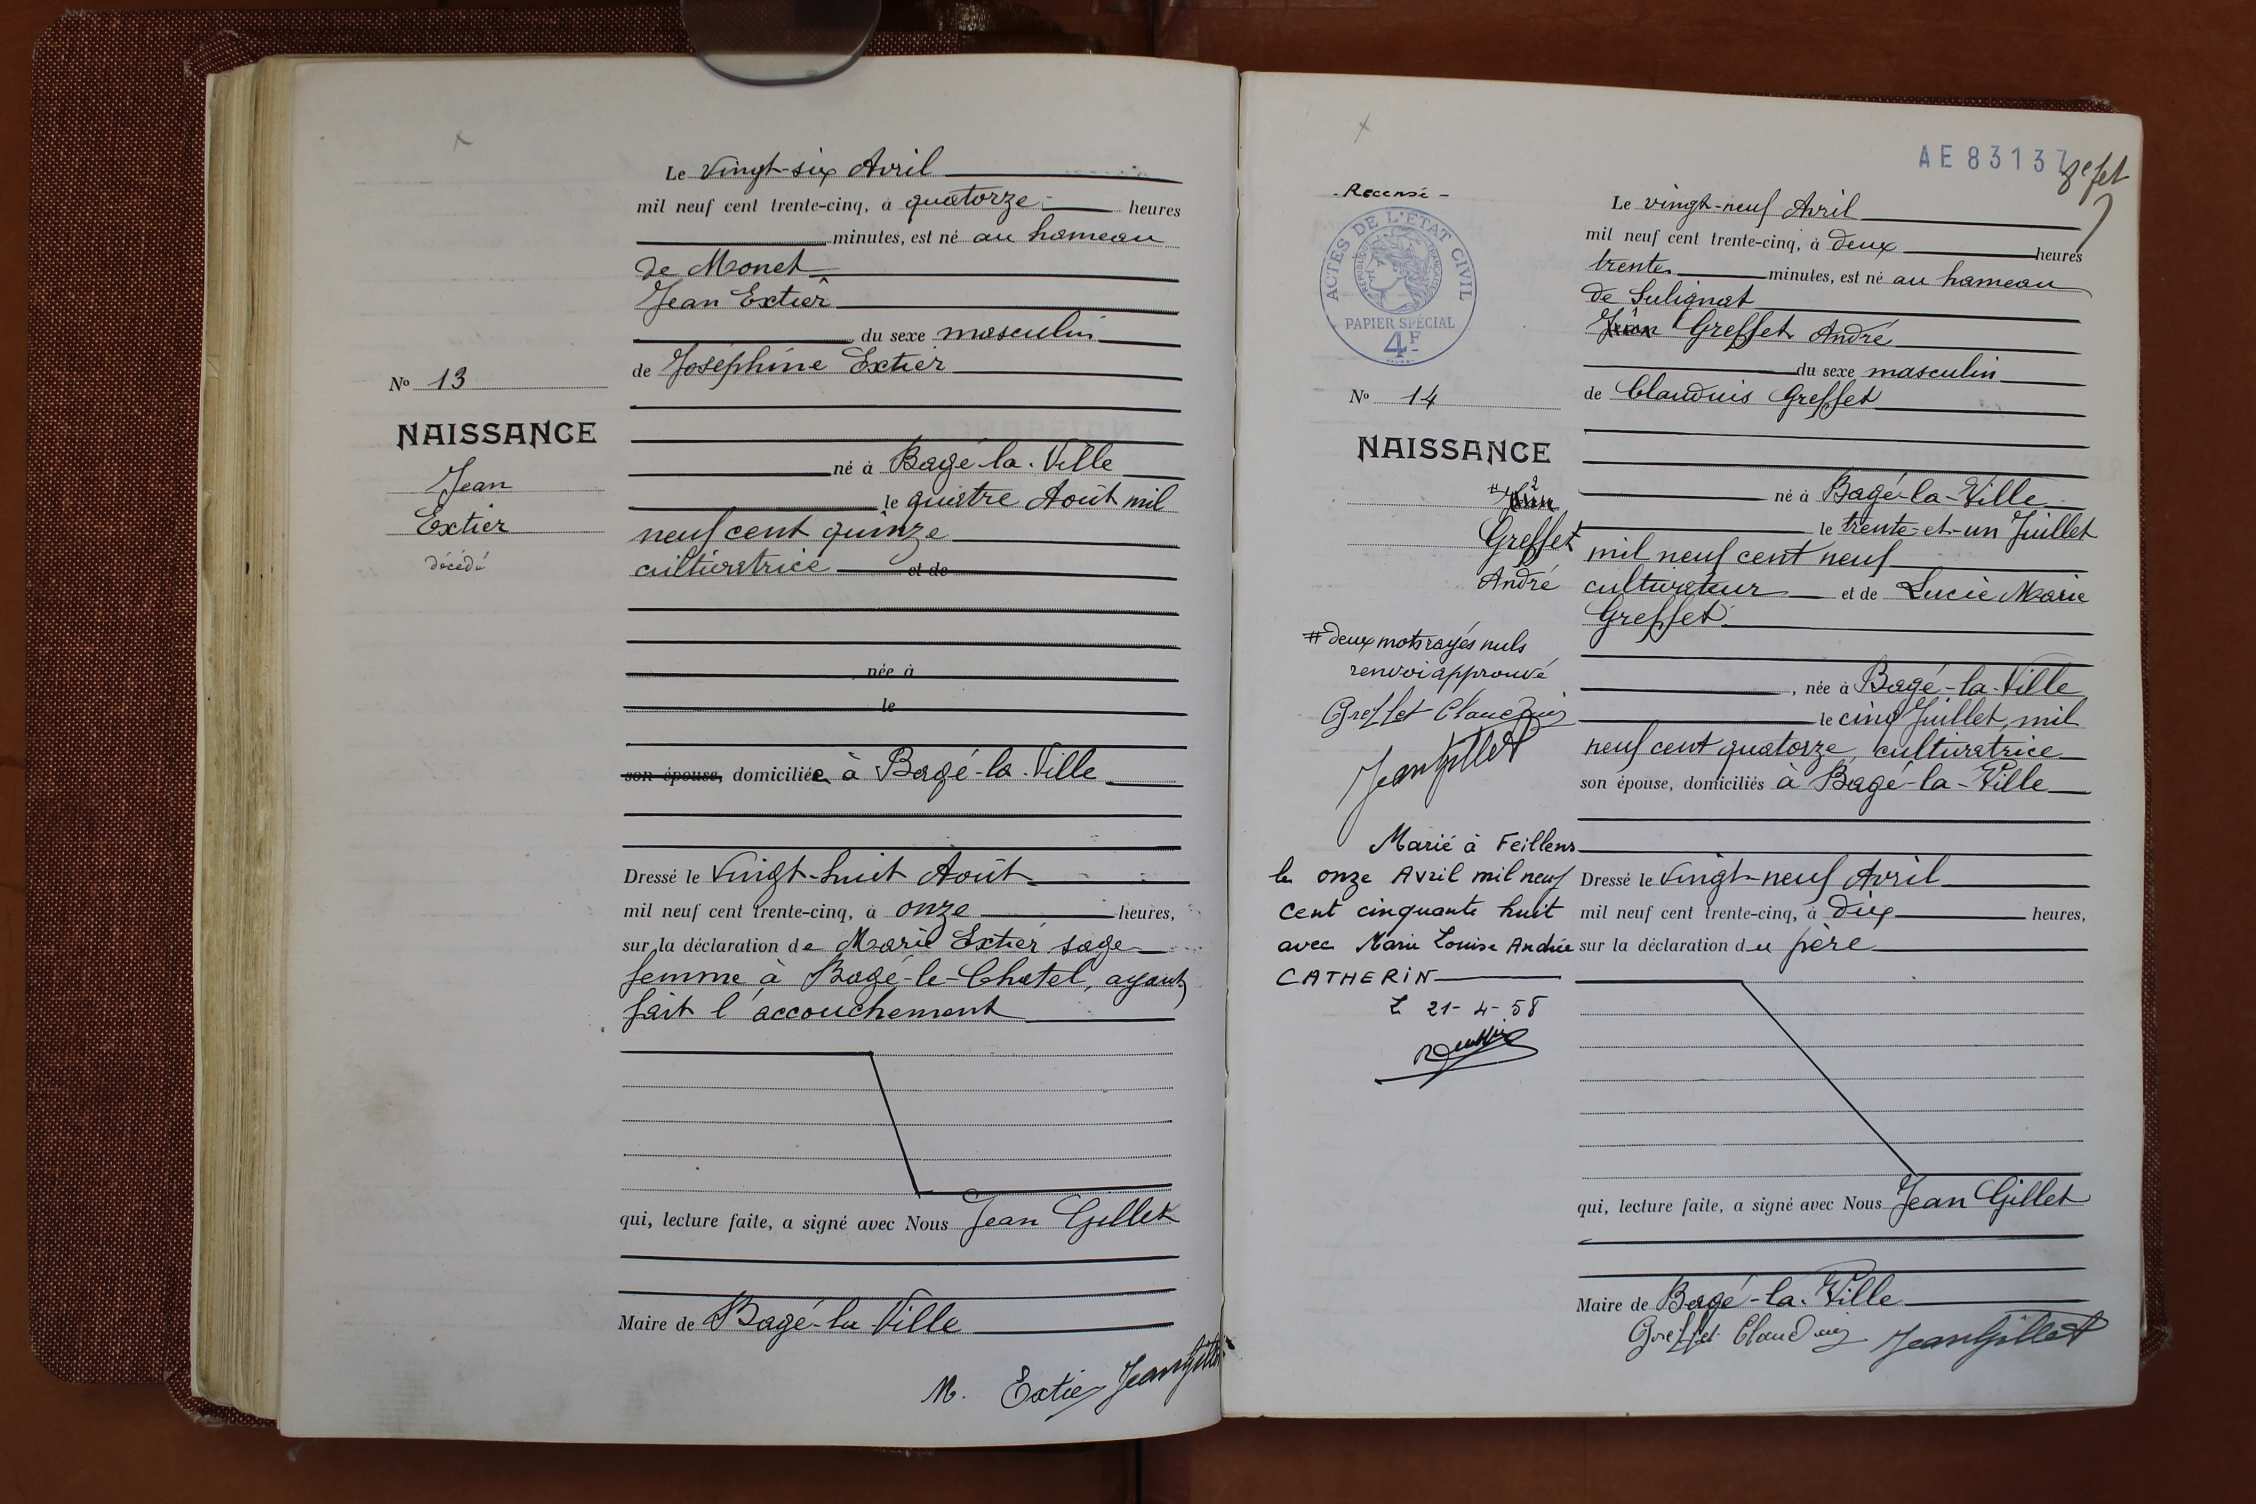 Le vingt-six Avril
mil neuf cent trente-cinq, à quatorze heures
minutes, est né au hameau
de Monet
Jean Extier
du sexe masculin
de Joséphine Extier
né à Bagé-la-Ville
le quatre Août mil
neuf cent quinze
cultivatrice et de
née à
le
son épouse, domiciliée à Bagé-la-Ville
Dressé le Vingt-huit Août
mil neuf cent trente-cinq, à onze heures,
sur la déclaration de Marie Extier sage
femme à Bagé-le-Chatel, ayant
fait l'accouchement
qui, lecture faite, a signé avec Nous Jean Gillet
Maire de Bagé-la-Ville
M. Extier Jean Gillet
No 13
NAISSANCE
Jean
Extier
décédé
AE 83137
8e fet
Le vingt-neuf Avril
mil neuf cent trente-cinq, à deux heures
trente minutes, est né au hameau
de Sulignat
Jean Greffet André
du sexe masculin
de Claudius Greffet
né à Bagé-la-Ville
le trente-et-un Juillet
mil neuf cent neuf
cultivateur et de Lucie Marie
Greffet
, née à Bagé-la-Ville
le cinq Juillet mil
neuf cent quatorze, cultivatrice
son épouse, domiciliés à Bagé-la-Ville
Dressé le Vingt-neuf Avril
mil neuf cent trente-cinq, à dix heures,
sur la déclaration du père
qui, lecture faite, a signé avec Nous Jean Gillet
Maire de Bagé-la-Ville
Greffet Claudius Jean Gillet
- Recensé -
ACTES DE L'ETAT CIVIL
REPUBLIQUE FRANÇAISE
PAPIER SPÉCIAL
4F
No 14
NAISSANCE
# Jean
Greffet
André
# deux mots rayés nuls
renvoi approuvé
Greffet Claudius
Jean Gillet
Marié à Feillens
le onze Avril mil neuf
cent cinquante huit
avec Marie Louise Andrée
CATHERIN
L 21-4-58